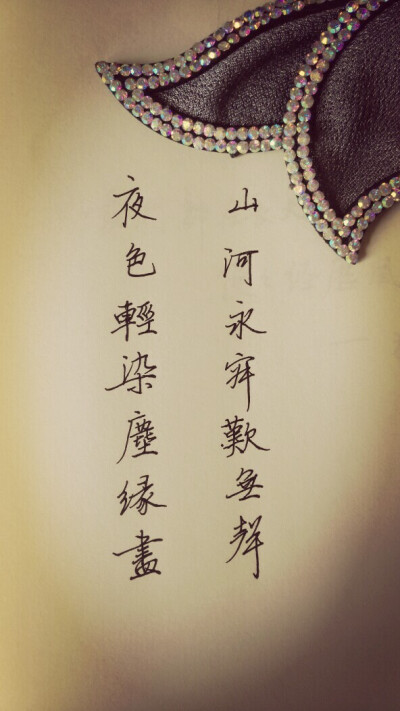 山河永寐歎無聲
夜色輕染塵緣盡